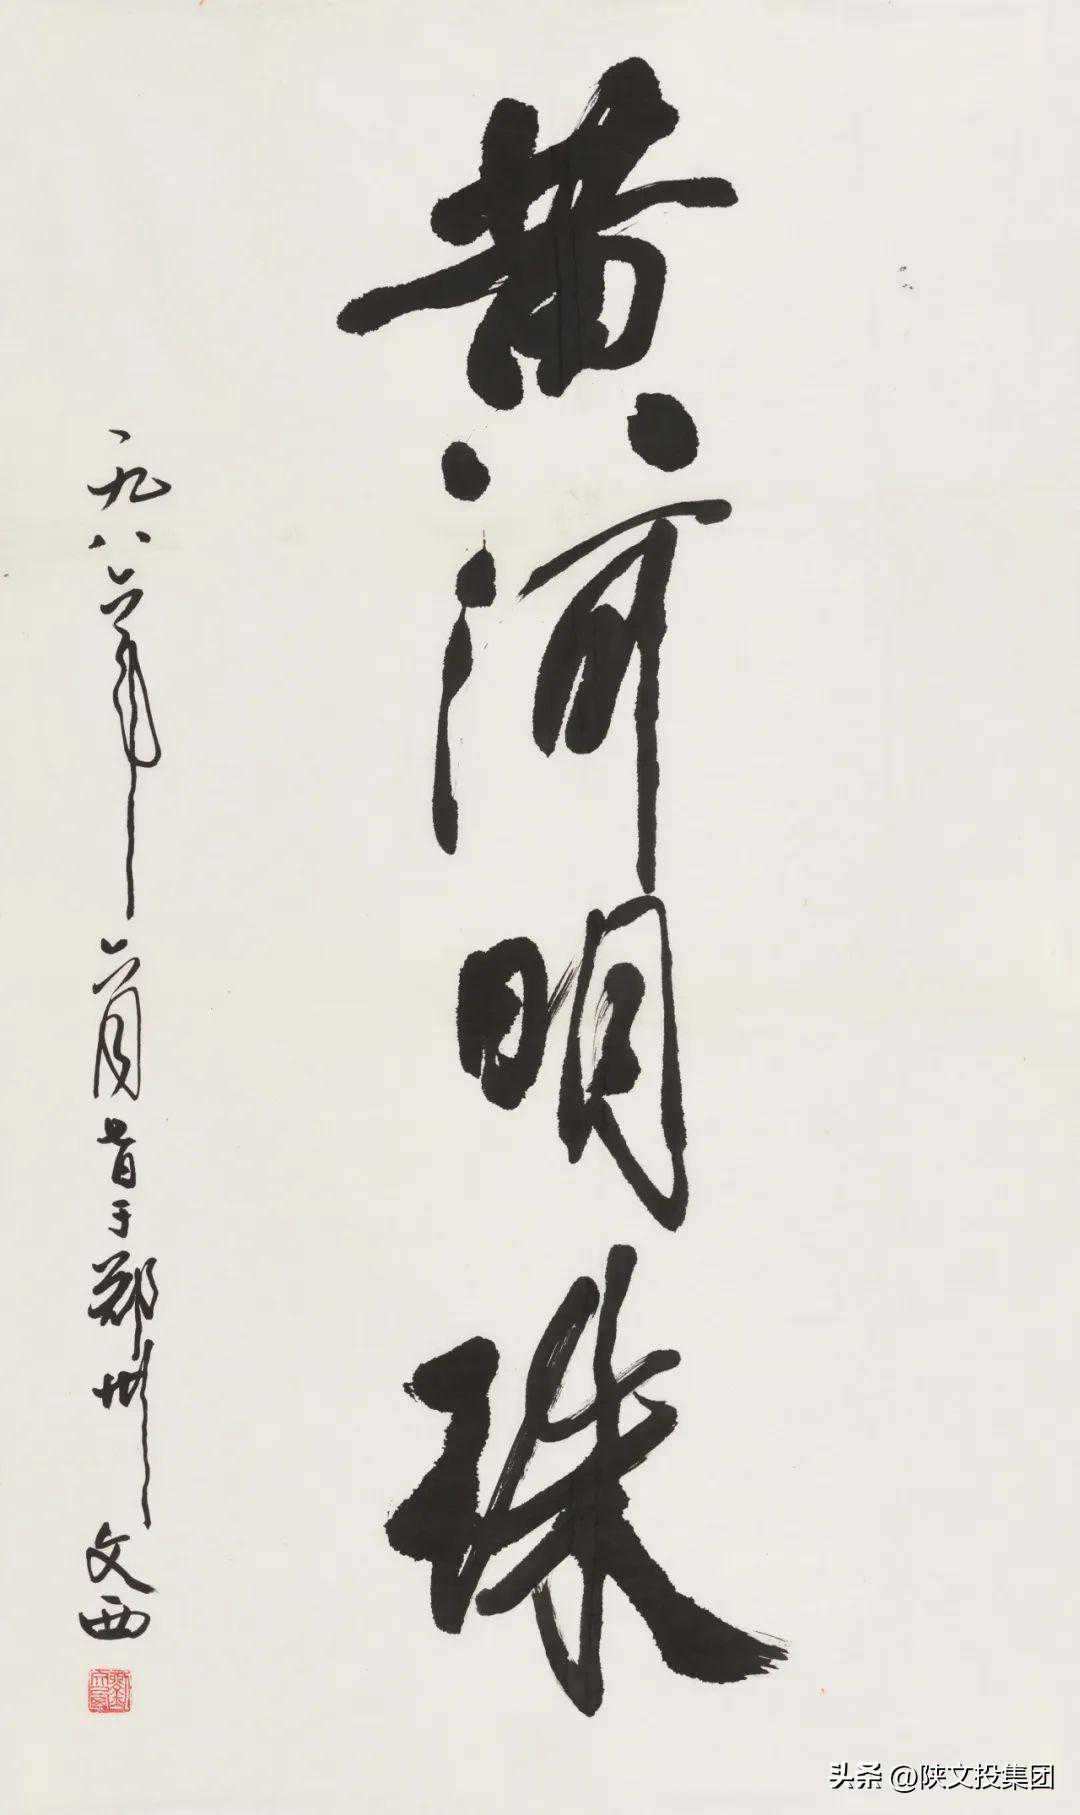 黄河明珠
一九八六年六月七日于郑州 文西
头条 @陕文投集团